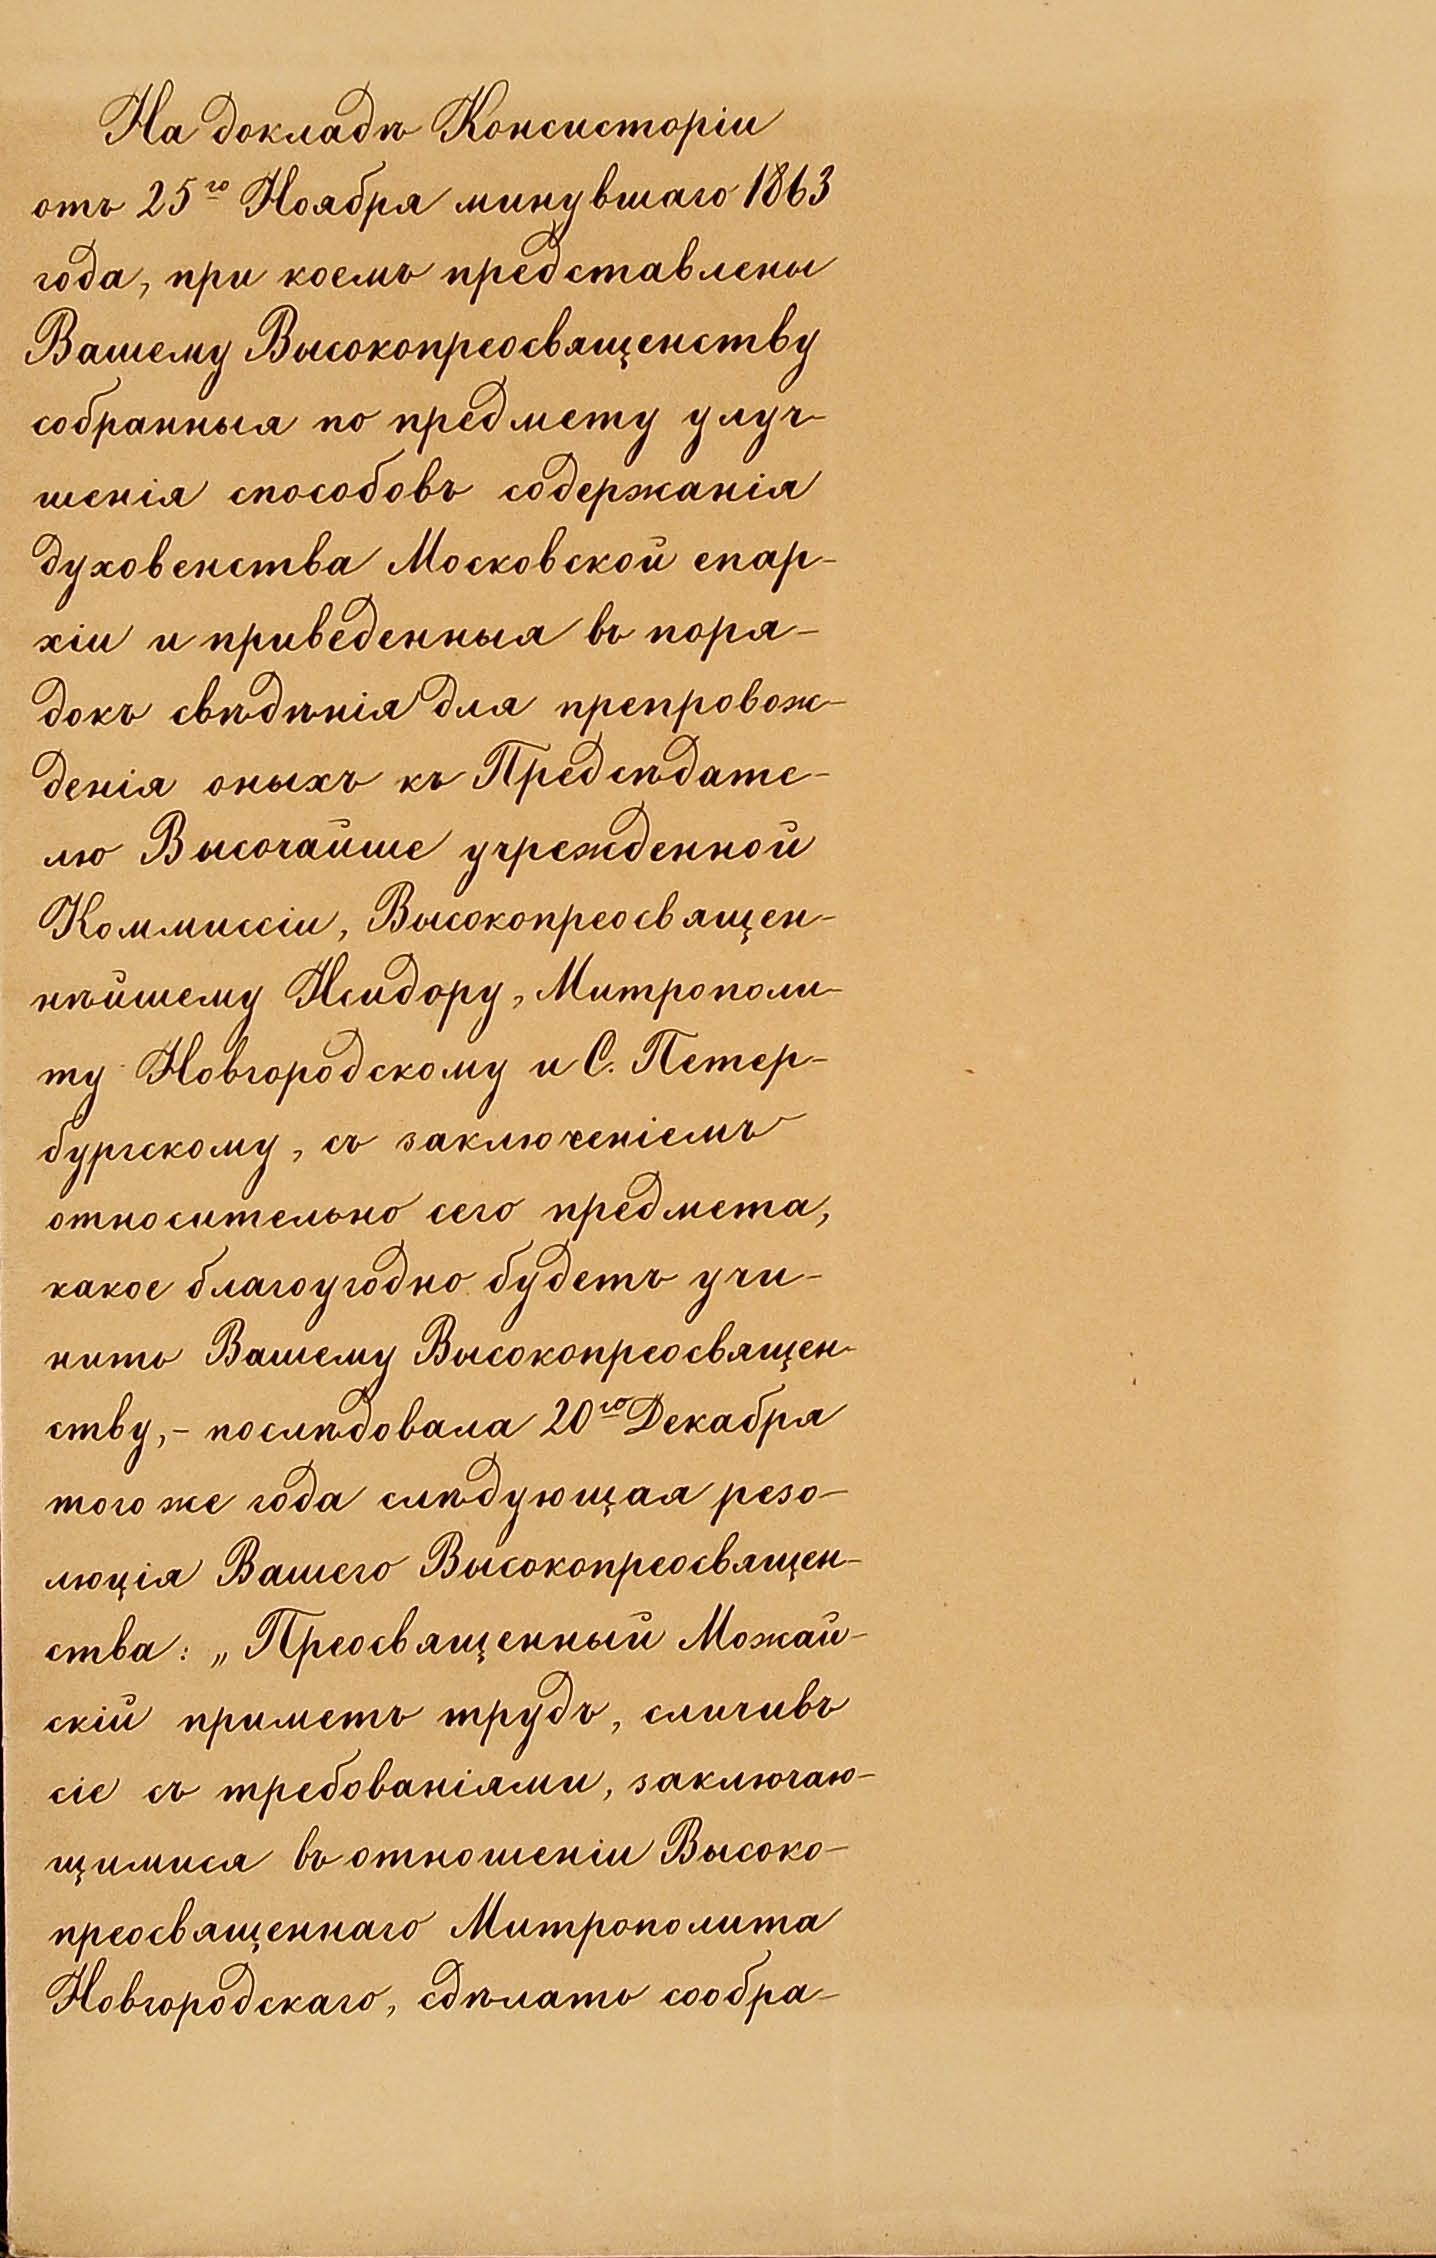 На докладѣ Консисторіи
отъ 25го Ноября минувшаго 1863
года, при коемъ представлены
Вашему Высокопреосвященству
собранныя по предмету улуч-
шенія способовъ содержанія
духовенства Московской епар-
хіи и приведенныя въ поря-
докъ свѣдѣнія для препровож-
денія оныхъ къ Предсѣдате-
лю Высочайше учрежденной
Коммиссіи, Высокопреосвящен-
нѣйшему Исидору, Митрополи-
ту Новгородскому и С. Петер-
бургскому, съ заключеніемъ
относительно сего предмета,
какое благоугодно будетъ учи-
нить Вашему Высокопреосвящен-
ству,- послѣдовала 20го Декабря
того же года слѣдующая резо-
люція Вашего Высокопреосвящен-
ства: „Преосвященный Можай-
скій приметъ трудъ, сличивъ
сіе съ требованіями, заключаю-
щимися въ отношеніи Высоко-
преосвященнаго Митрополита
Новгородскаго, сдѣлать сообра-